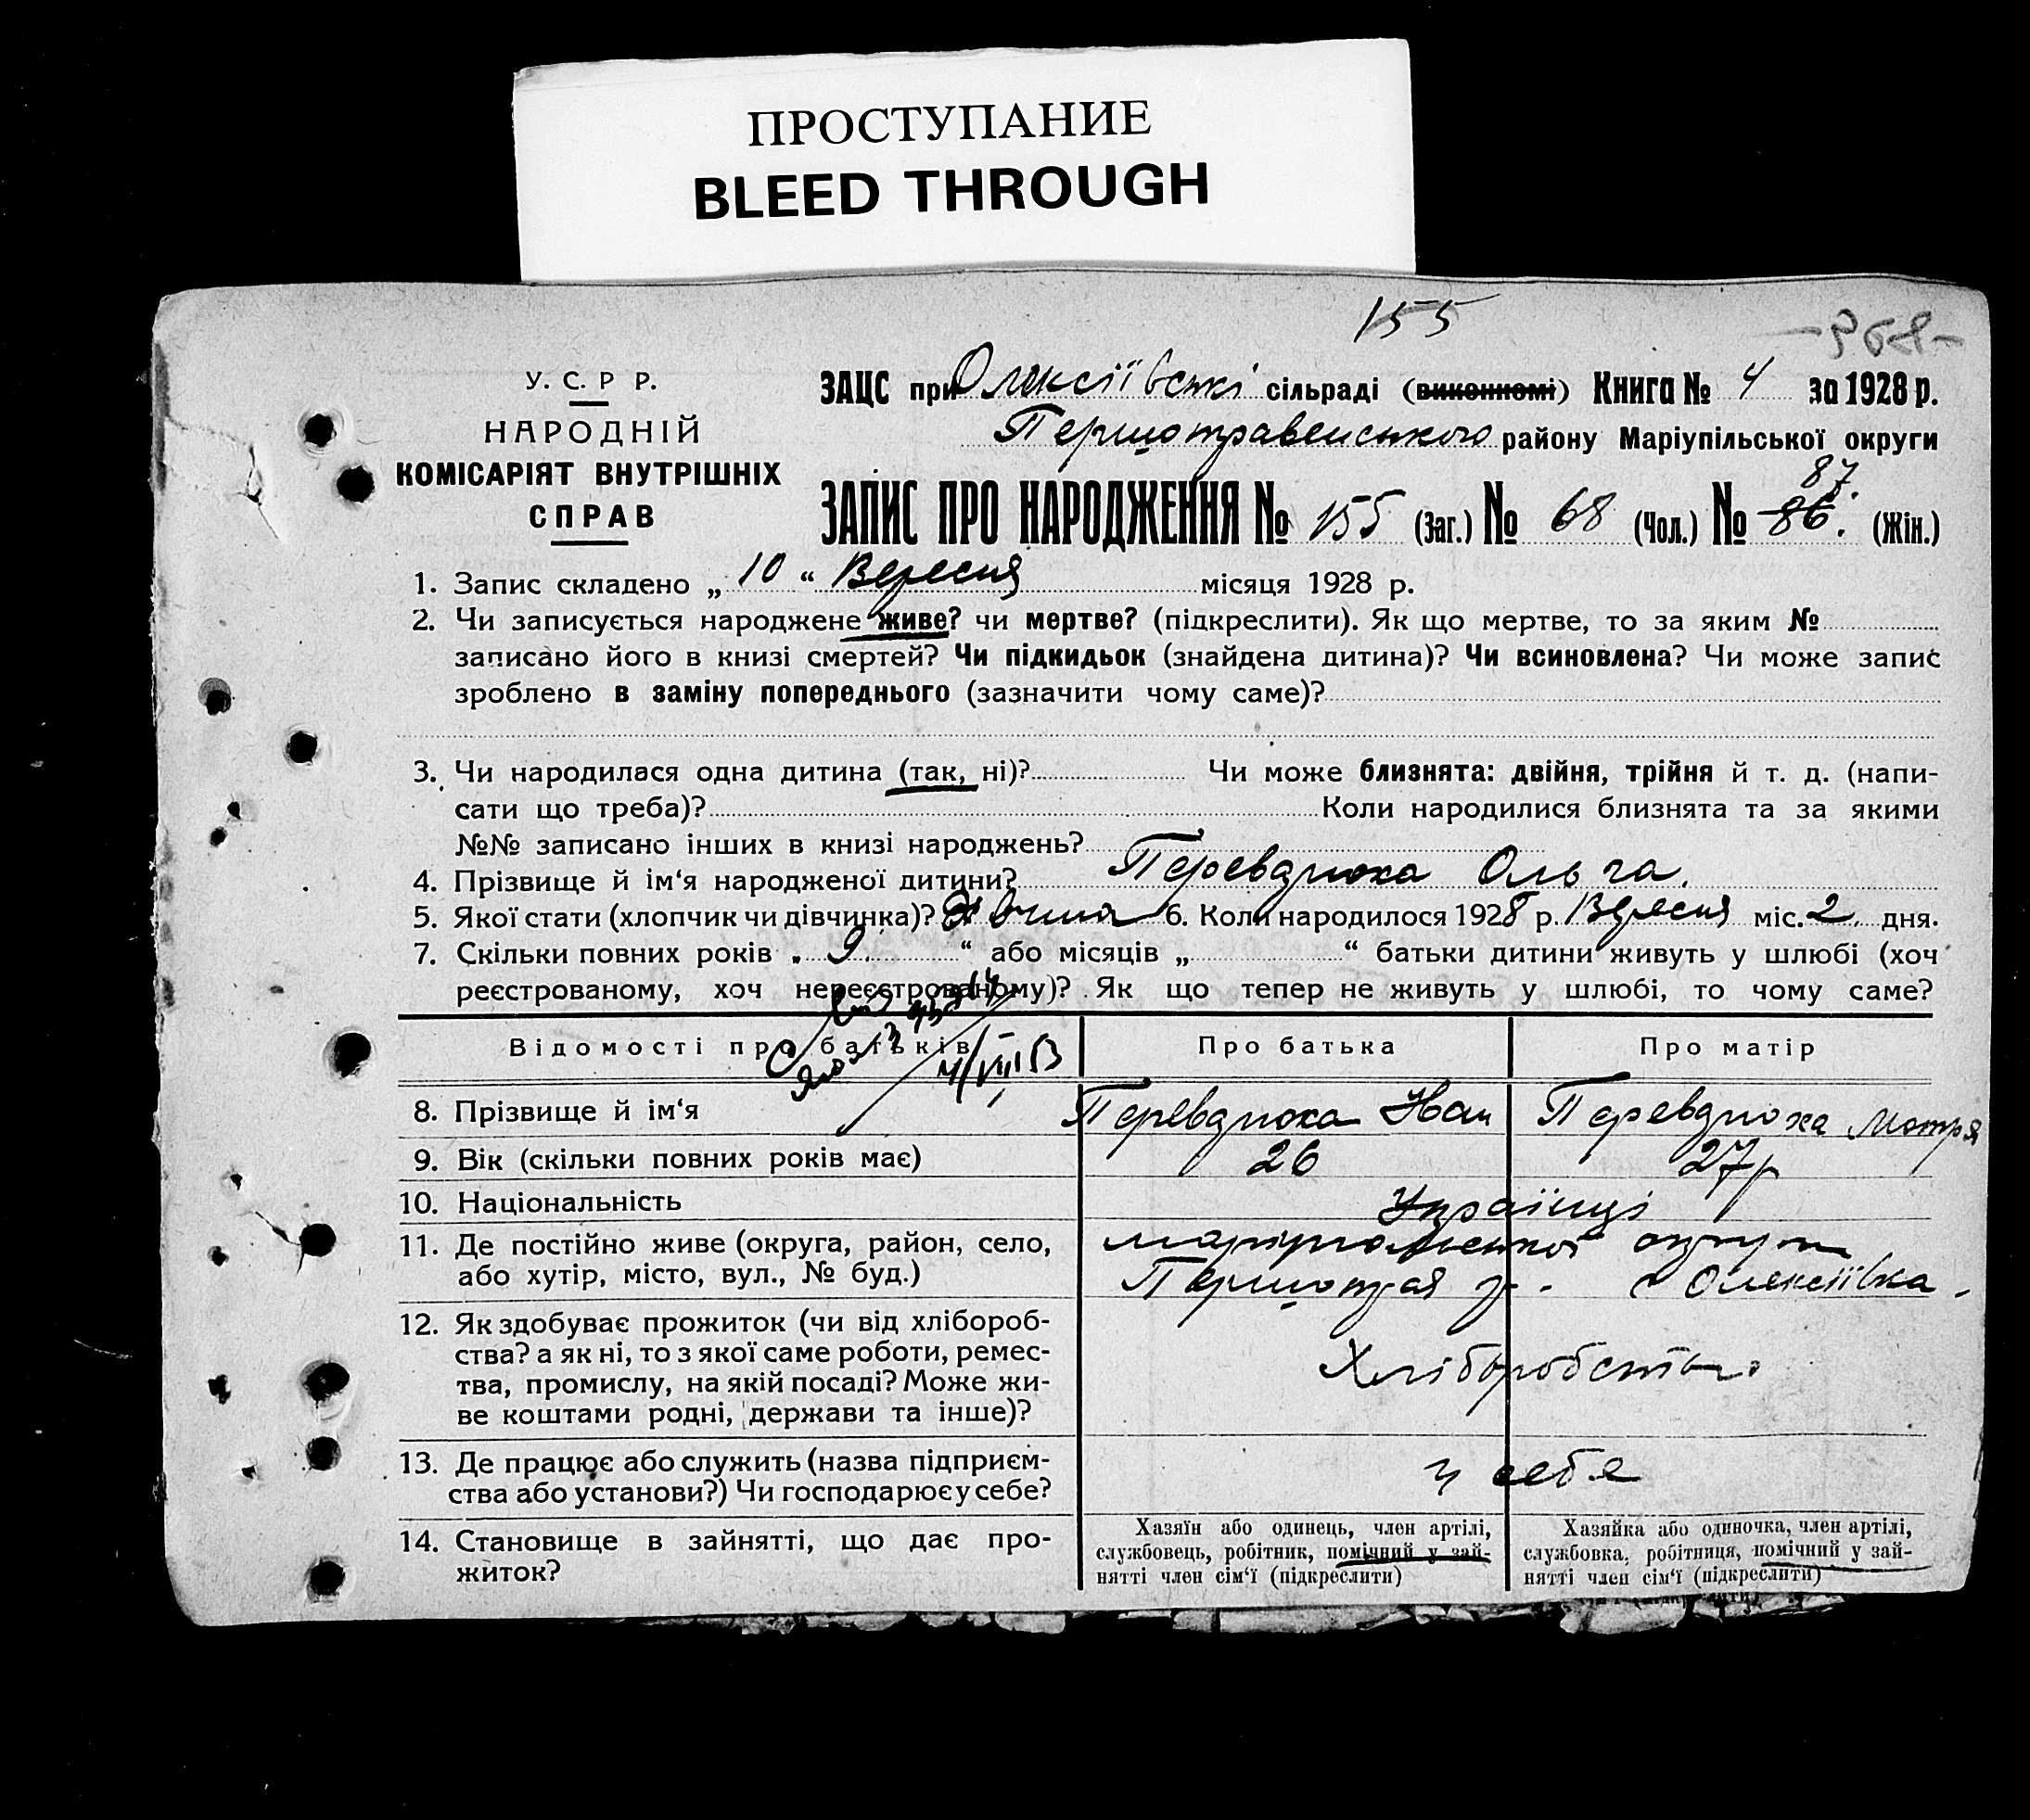 ПРОСТУПАНИЕ
BLEED THROUGH
155
-968-
У. С. Р Р.
НАРОДНІЙ
КОМІСАРІЯТ ВНУТРІШНІХ
СПРАВ
ЗАЦС при Олексіївські сільраді (виконкомі) Книга № 4 за 1928 р.
Першотравенського району Маріупільської округи
87.
ЗАПИС ПРО НАРОДЖЕННЯ № 155 (Заг.) № 68 (Чол.) № 86. (Жін.)
1. Запис складено „ 10 “ Вересня місяця 1928 р.
2. Чи записується народжене живе? чи мертве? (підкреслити). Як що мертве, то за яким №
записано його в книзі смертей? Чи підкидьок (знайдена дитина)? Чи всиновлена? Чи може запис
зроблено в заміну попереднього (зазначити чому саме)?
3. Чи народилася одна дитина (так, ні)? Чи може близнята: двійня, трійня й т. д. (напи-
сати що треба)? Коли народилися близнята та за якими
№№ записано інших в книзі народжень?
4. Прізвище й ім‘я народженої дитини? Перевдрюха Ольга.
5. Якої стати (хлопчик чи дівчинка)? Дівчина 6. Коли народилося 1928 р. Вересня міс. 2 дня.
7. Скільки повних років „ 9. “ або місяців „ “ батьки дитини живуть у шлюбі (хоч
реєстрованому, хоч нереєстрованому)? Як що тепер не живуть у шлюбі, то чому саме?
Відомості про батьків Про батька Про матір
4/VIII 53
8. Прізвище й ім‘я Перевдрюха Іван Перевдрюха Мотря
9. Вік (скільки повних років має) 26 27 р
10. Національність Українці
11. Де постійно живе (округа, район, село, Маріупольської округи
або хутір, місто, вул., № буд.) Першотрав р. с Олексіївка.
12. Як здобуває прожиток (чи від хлібороб-
ства? а як ні, то з якої саме роботи, ремес-
тва, промислу, на якій посаді? Може жи-
ве коштами родні, держави та інше)?
Хліборобство
13. Де працює або служить (назва підприєм-
ства або установи?) Чи господарює у себе?
у себе
14. Становище в зайнятті, що дає про-
житок?
Хазяїн або одинець, член артілі,
службовець, робітник, помічний у зай-
нятті член сім‘ї (підкреслити)
Хазяйка або одиночка, член артілі,
службовка, робітниця, помічний у зай-
нятті член сім‘ї (підкреслити)